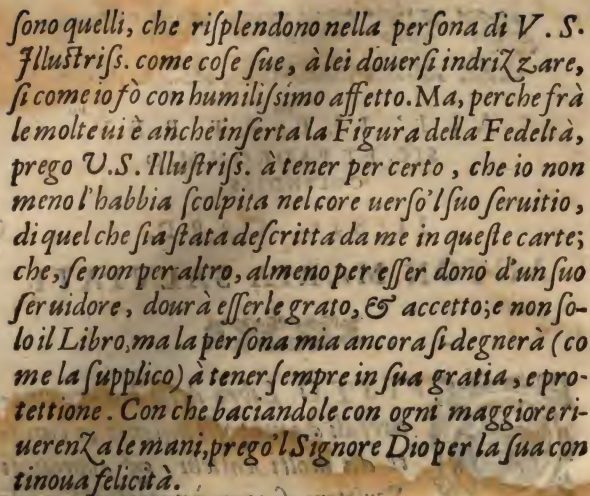 ſono quelli, che riſplendono nella perſona di V. S.
Illuſtriſs. come coſe ſue, à lei douerſi indrizzare,
ſi come io fò con humiliſsimo affetto. Ma, perche frà
le molte ui è anche inſerta la Figura della Fedeltà,
prego V.S. Illuſtriſs. à tener per certo, che io non
meno l'habbia ſcolpita nel core uerſo'l ſuo ſeruitio,
di quel che ſia ſtata deſcritta da me in queſte carte;
che, ſe non per altro, almeno per eſſer dono d'un ſuo
ſeruidore, dourà eſſerle grato, & accetto; e non ſo-
lo il Libro, ma la perſona mia ancora ſi degnerà (co
me la ſupplico) à tener ſempre in ſua gratia, e pro-
tettione. Con che baciandole con ogni maggiore ri-
uerenza le mani, prego'l Signore Dio per la ſua con
tinoua felicità.